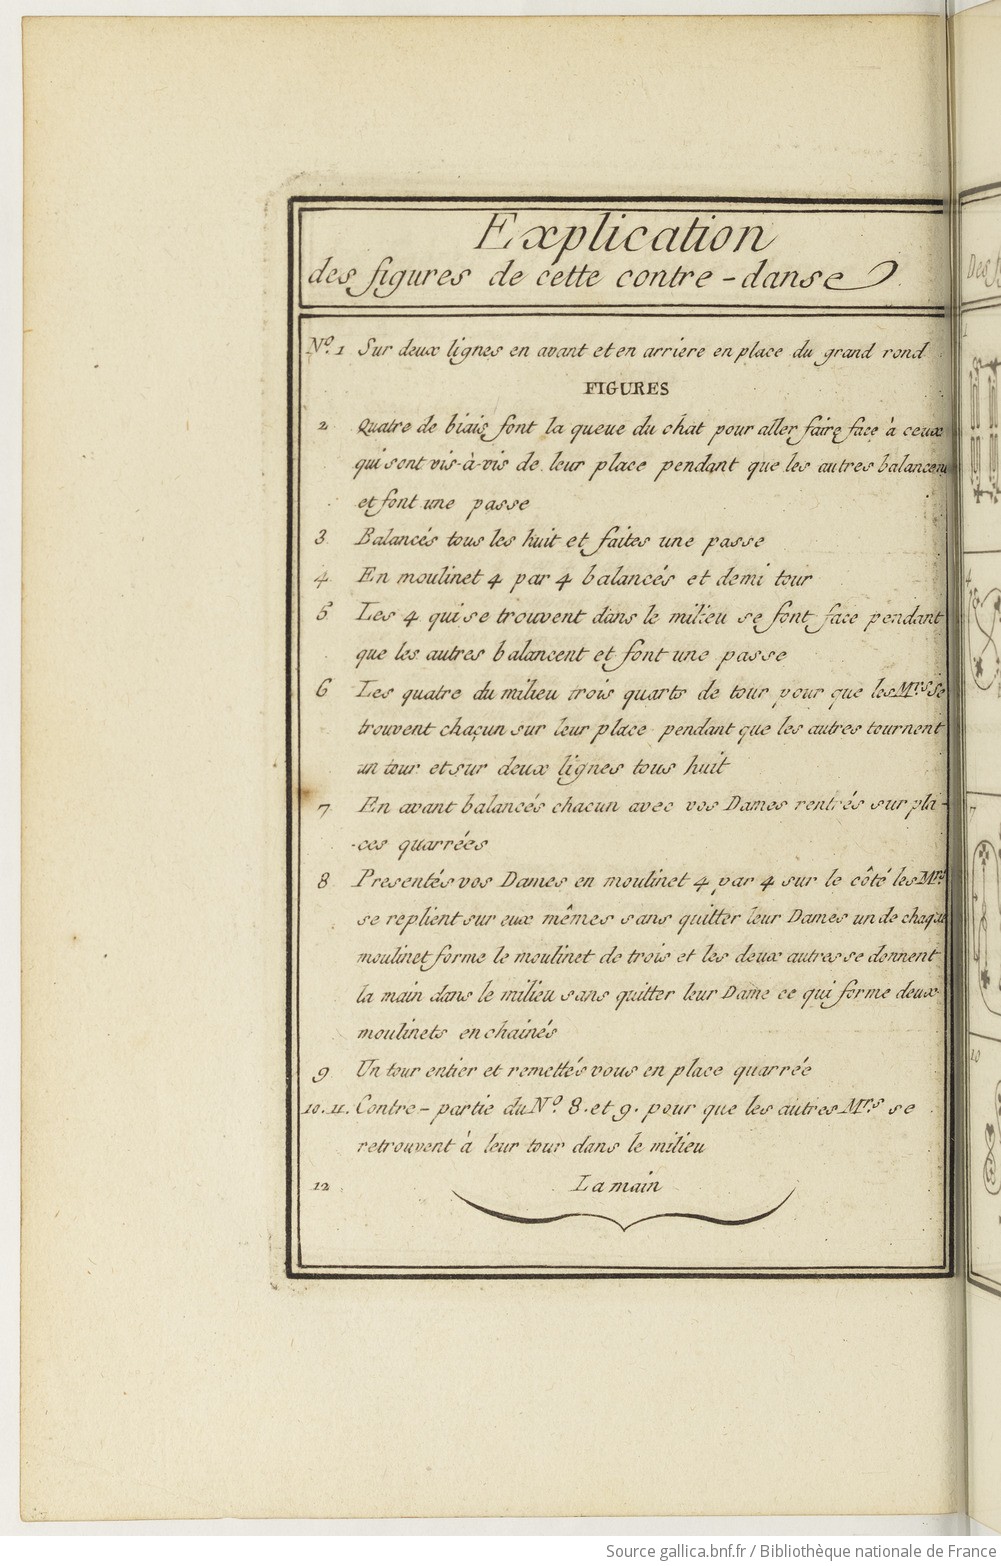 Explication
des figures de cette contre-danse
Nº. 1 Sur deux lignes en avant et en arriere en place du grand rond
FIGURES
2 Quatre de biais font la queue du chat pour aller faire face à ceux
qui sont vis-à-vis de leur place pendant que les autres balancent
et font une passe
3 Balancés tous les huit et faites une passe
4 En moulinet 4 par 4 balancés et demi tour
5 Les 4 qui se trouvent dans le milieu se font face pendant
que les autres balancent et font une passe
6 Les quatre du milieu trois quarts de tour pour que les Mrs se
trouvent chaçun sur leur place pendant que les autres tournent
un tour et sur deux lignes tous huit
7 En avant balancés chacun avec vos Dames rentrés sur pla-
-ces quarrées
8 Presentés vos Dames en moulinet 4 par 4 sur le côté les Mrs
se replient sur eux mêmes sans quitter leur Dames un de chaque
moulinet forme le moulinet de trois et les deux autres se donnent
la main dans le milieu sans quitter leur Dame ce qui forme deux
moulinets enchainés
9 Un tour entier et remettés vous en place quarrée
10. 11. Contre-partie du Nº 8. et 9. pour que les autres Mrs se
retrouvent à leur tour dans le milieu
12 La main
Des
4
7
10
Source gallica.bnf.fr / Bibliothèque nationale de France